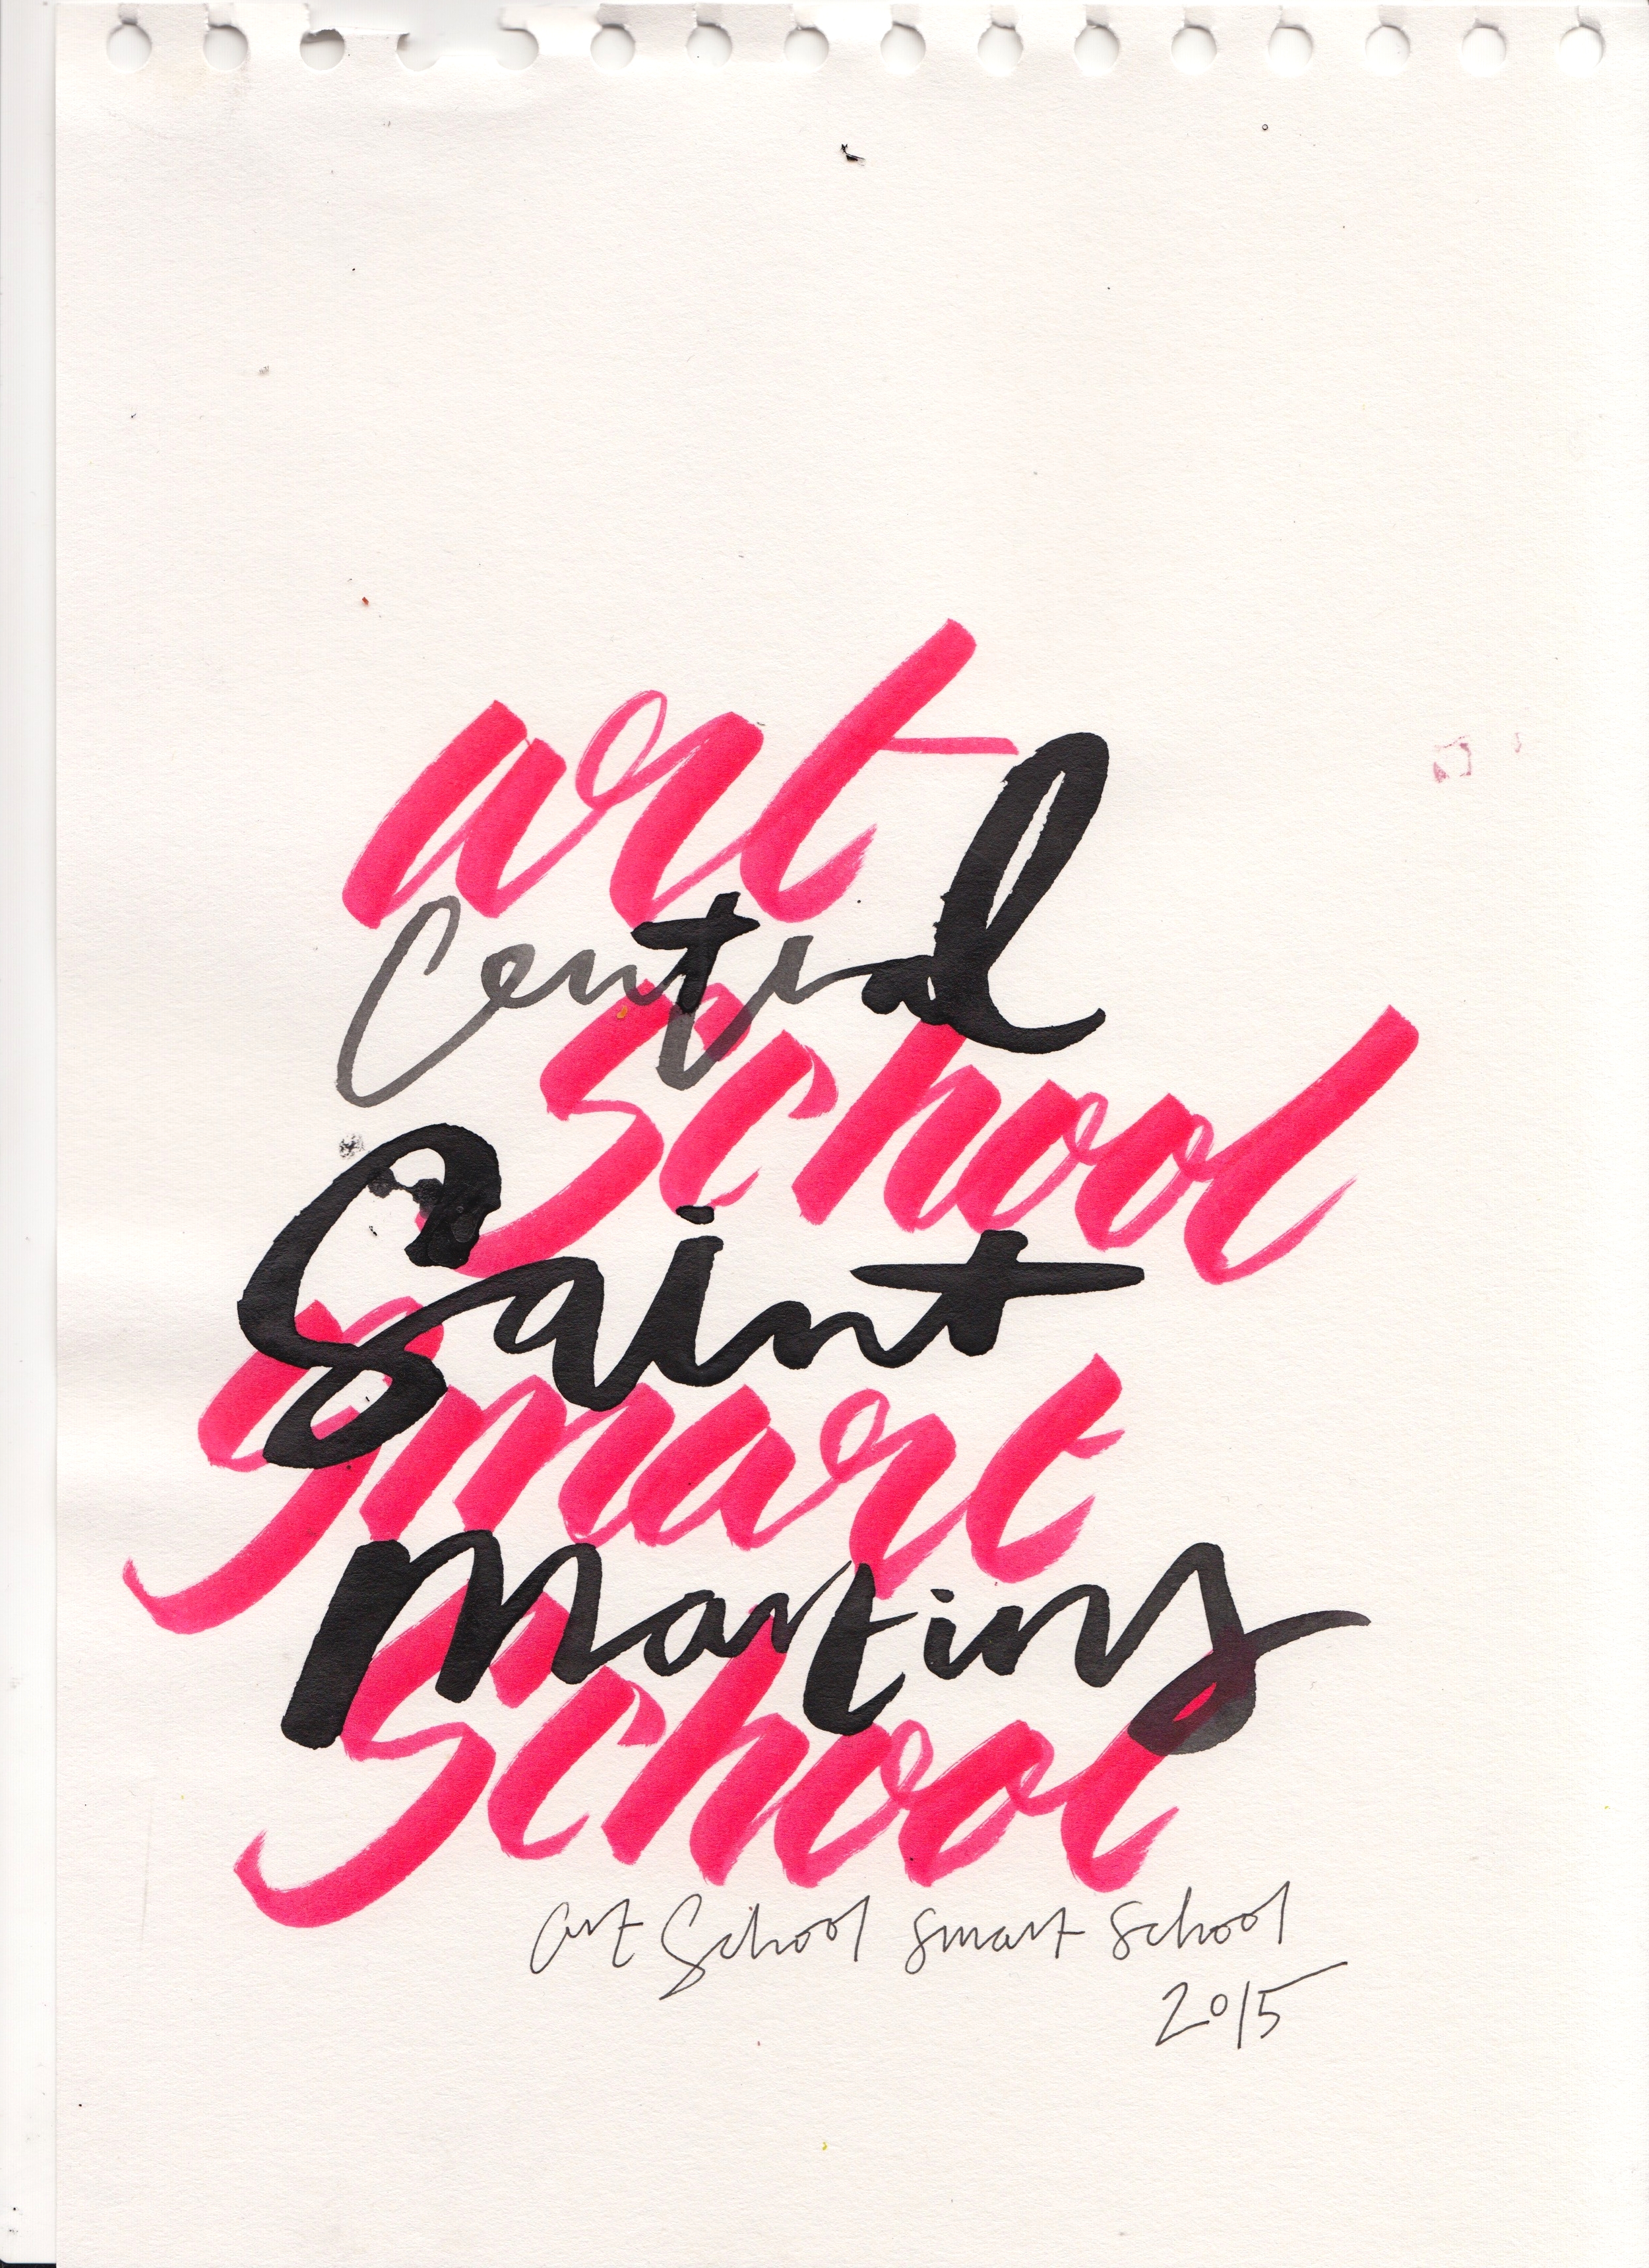 art
Central
School
Saint
Smart
Martins
School
art School smart School
2015